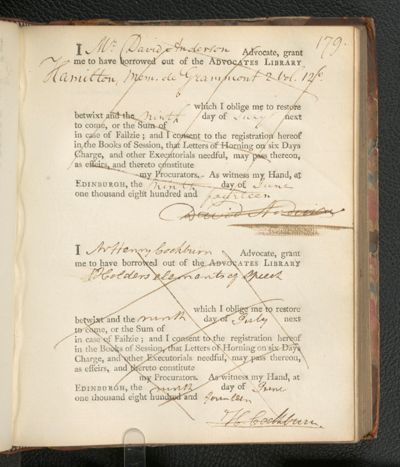 179.
I Mr David Anderson Advocate, grant
me to have borrowed out of the ADVOCATES LIBRARY
Hamilton, Mem. de Grammont 2 vol. 12o
which I oblige me to restore
betwixt and the ninth day of July next
to come, or the Sum of
in case of Failzie; and I consent to the registration hereof
in the Books of Session, that Letters of Horning on six Days
Charge, and other Executorials needful, may pass thereon,
as effeirs, and thereto constitute
my Procurators. As witness my Hand, at
EDINBURGH, the ninth day of June
one thousand eight hundred and fourteen
David Anderson
I Mr Henry Cockburn Advocate, grant
me to have borrowed out of the ADVOCATES LIBRARY
Holders elements of Speech
which I oblige me to restore
betwixt and the ninth day of July next
to come, or the Sum of
in case of Failzie; and I consent to the registration hereof
in the Books of Session, that Letters of Horning on six Days
Charge, and other Executorials needful, may pass thereon,
as effeirs, and thereto constitute
my Procurators. As witness my Hand, at
EDINBURGH, the ninth day of June
one thousand eight hundred and fourteen
H Cockburn.